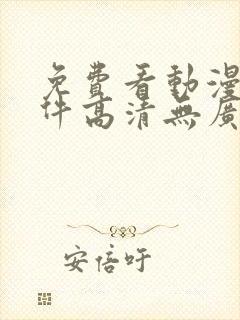 免費看動漫
件高清無廣
安倍吁